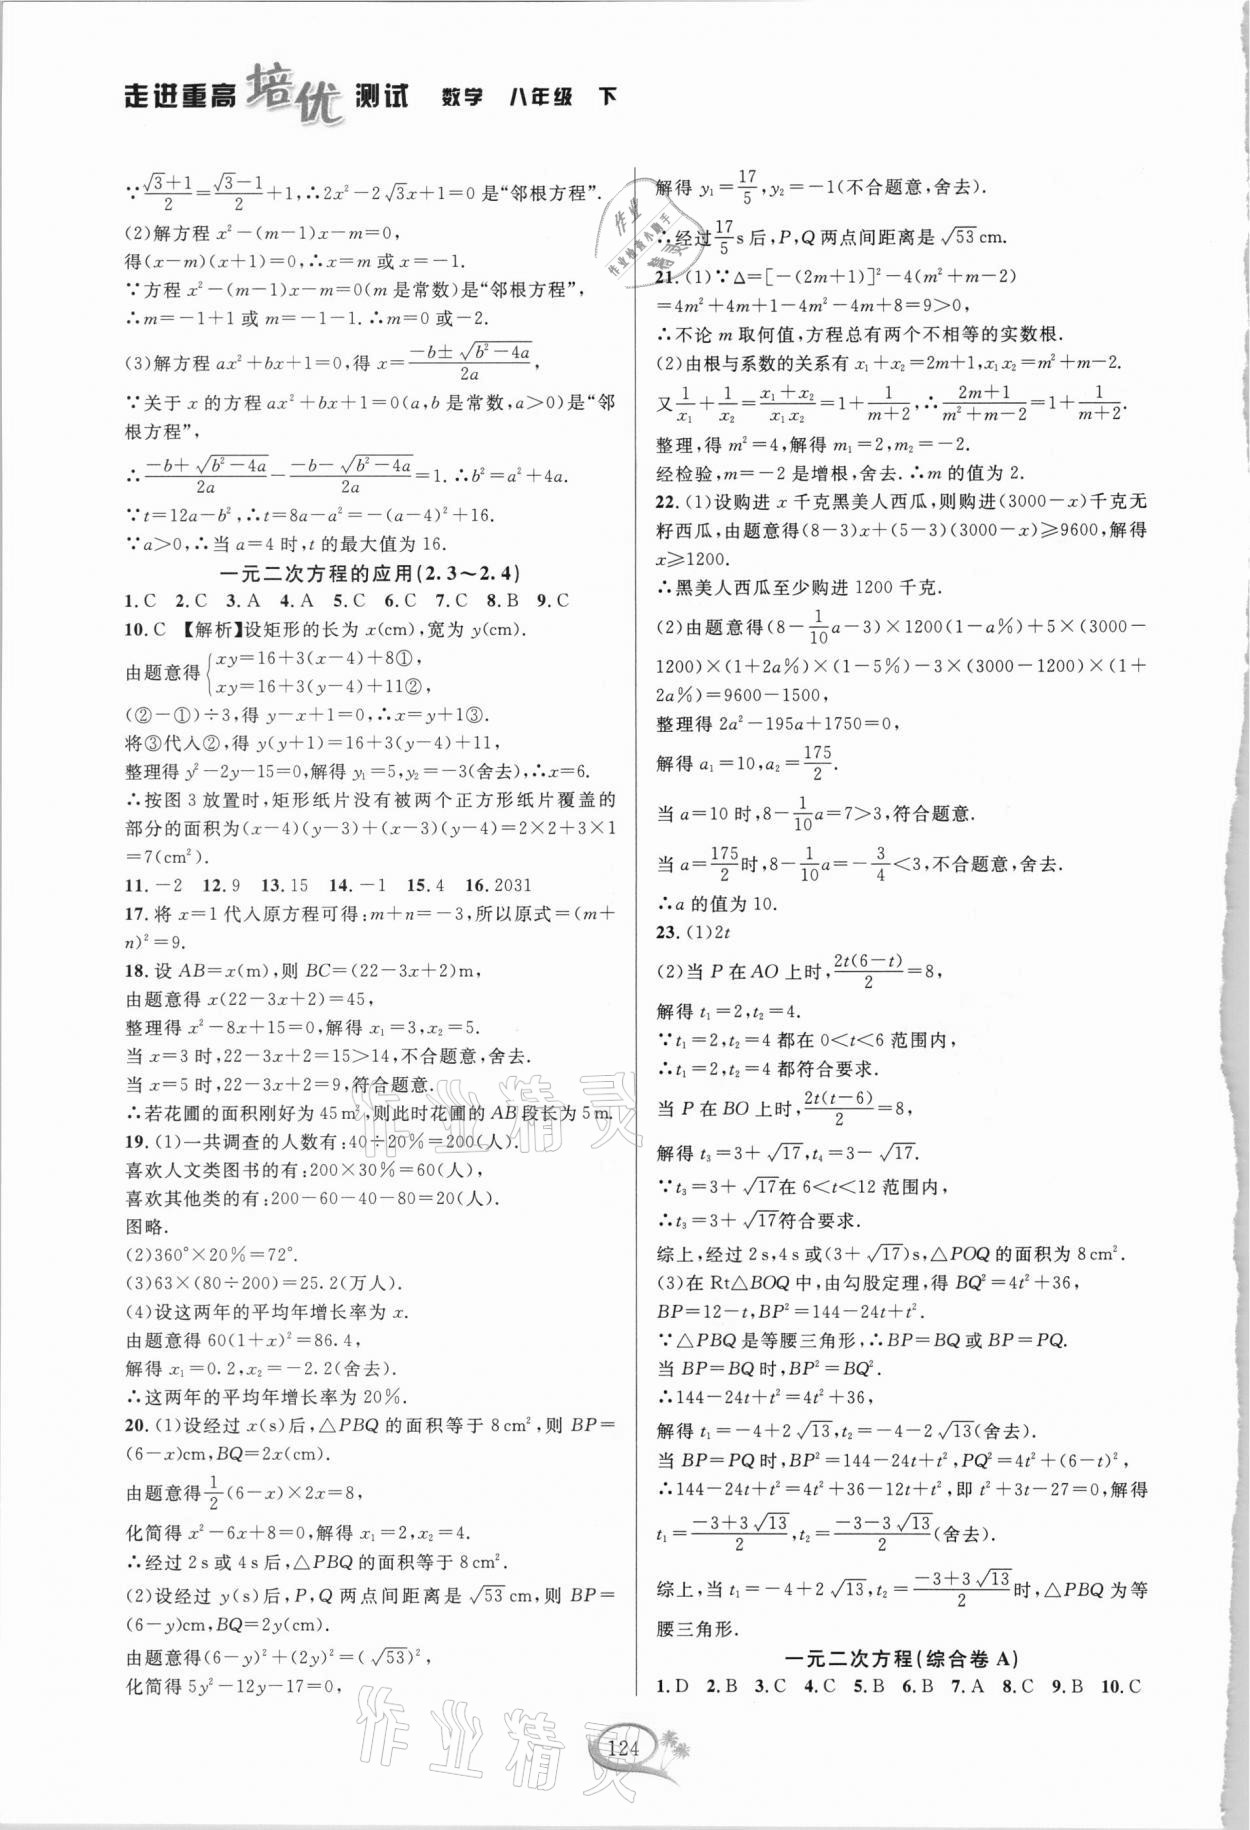 走进重高 培优 测试 数学 八年级 下
∵(√3+1)/2=(√3-1)/2+1,∴2x²-2√3x+1=0是“邻根方程”.
(2)解方程 x²-(m-1)x-m=0,
得(x-m)(x+1)=0,∴x=m 或 x=-1.
∵方程 x²-(m-1)x-m=0(m 是常数)是“邻根方程”,
∴m=-1+1 或 m=-1-1.∴m=0 或-2.
(3)解方程 ax²+bx+1=0,得 x=(-b±√(b²-4a))/2a,
∵关于 x 的方程 ax²+bx+1=0(a,b 是常数,a>0)是“邻
根方程”,
∴(-b+√(b²-4a))/2a-(-b-√(b²-4a))/2a=1.∴b²=a²+4a.
∵t=12a-b²,∴t=8a-a²=-(a-4)²+16.
∵a>0,∴当 a=4 时,t 的最大值为 16.
一元二次方程的应用(2.3~2.4)
1.C 2.C 3.A 4.A 5.C 6.C 7.C 8.B 9.C
10.C 【解析】设矩形的长为 x(cm),宽为 y(cm).
由题意得{xy=16+3(x-4)+8①,
xy=16+3(y-4)+11②,
(②-①)÷3,得 y-x+1=0,∴x=y+1③.
将③代入②,得 y(y+1)=16+3(y-4)+11,
整理得 y²-2y-15=0,解得 y₁=5,y₂=-3(舍去),∴x=6.
∴按图 3 放置时,矩形纸片没有被两个正方形纸片覆盖的
部分的面积为(x-4)(y-3)+(x-3)(y-4)=2×2+3×1
=7(cm²).
11.-2 12.9 13.15 14.-1 15.4 16.2031
17.将 x=1 代入原方程可得:m+n=-3,所以原式=(m+
n)²=9.
18.设 AB=x(m),则 BC=(22-3x+2)m,
由题意得 x(22-3x+2)=45,
整理得 x²-8x+15=0,解得 x₁=3,x₂=5.
当 x=3 时,22-3x+2=15>14,不合题意,舍去.
当 x=5 时,22-3x+2=9,符合题意.
∴若花圃的面积刚好为 45 m²,则此时花圃的 AB 段长为 5 m.
19.(1)一共调查的人数有:40÷20%=200(人).
喜欢人文类图书的有:200×30%=60(人),
喜欢其他类的有:200-60-40-80=20(人).
图略.
(2)360°×20%=72°.
(3)63×(80÷200)=25.2(万人).
(4)设这两年的平均年增长率为 x.
由题意得 60(1+x)²=86.4,
解得 x₁=0.2,x₂=-2.2(舍去).
∴这两年的平均年增长率为 20%.
20.(1)设经过 x(s)后,△PBQ 的面积等于 8 cm²,则 BP=
(6-x)cm,BQ=2x(cm).
由题意得1/2(6-x)×2x=8,
化简得 x²-6x+8=0,解得 x₁=2,x₂=4.
∴经过 2 s 或 4 s 后,△PBQ 的面积等于 8 cm².
(2)设经过 y(s)后,P,Q 两点间距离是√53 cm,则 BP=
(6-y)cm,BQ=2y(cm).
由题意得(6-y)²+(2y)²=(√53)²,
化简得 5y²-12y-17=0,
解得 y₁=17/5,y₂=-1(不合题意,舍去).
∴经过17/5 s 后,P,Q 两点间距离是√53 cm.
21.(1)∵Δ=[-(2m+1)]²-4(m²+m-2)
=4m²+4m+1-4m²-4m+8=9>0,
∴不论 m 取何值,方程总有两个不相等的实数根.
(2)由根与系数的关系有 x₁+x₂=2m+1,x₁x₂=m²+m-2.
又1/x₁+1/x₂=(x₁+x₂)/x₁x₂=1+1/(m+2),∴(2m+1)/(m²+m-2)=1+1/(m+2).
整理,得 m²=4,解得 m₁=2,m₂=-2.
经检验,m=-2 是增根,舍去.∴m 的值为 2.
22.(1)设购进 x 千克黑美人西瓜,则购进(3000-x)千克无
籽西瓜,由题意得(8-3)x+(5-3)(3000-x)≥9600,解得
x≥1200.
∴黑美人西瓜至少购进 1200 千克.
(2)由题意得(8-1/10a-3)×1200(1-a%)+5×(3000-
1200)×(1+2a%)×(1-5%)-3×(3000-1200)×(1+
2a%)=9600-1500,
整理得 2a²-195a+1750=0,
解得 a₁=10,a₂=175/2.
当 a=10 时,8-1/10a=7>3,符合题意.
当 a=175/2时,8-1/10a=-3/4<3,不合题意,舍去.
∴a 的值为 10.
23.(1)2t
(2)当 P 在 AO 上时,2t(6-t)/2=8,
解得 t₁=2,t₂=4.
∵t₁=2,t₂=4 都在 0<t<6 范围内,
∴t₁=2,t₂=4 都符合要求.
当 P 在 BO 上时,2t(t-6)/2=8,
解得 t₃=3+√17,t₄=3-√17.
∵t₃=3+√17在 6<t<12 范围内,
∴t₃=3+√17符合要求.
综上,经过 2 s,4 s 或(3+√17)s,△POQ 的面积为 8 cm².
(3)在 Rt△BOQ 中,由勾股定理,得 BQ²=4t²+36,
BP=12-t,BP²=144-24t+t².
∵△PBQ 是等腰三角形,∴BP=BQ 或 BP=PQ.
当 BP=BQ 时,BP²=BQ².
∴144-24t+t²=4t²+36,
解得 t₁=-4+2√13,t₂=-4-2√13(舍去).
当 BP=PQ 时,BP²=144-24t+t²,PQ²=4t²+(6-t)²,
∴144-24t+t²=4t²+36-12t+t²,即 t²+3t-27=0,解得
t₁=(-3+3√13)/2,t₂=(-3-3√13)/2(舍去).
综上,当 t₁=-4+2√13,t₂=(-3+3√13)/2时,△PBQ 为等
腰三角形.
一元二次方程(综合卷 A)
1.D 2.B 3.C 4.C 5.B 6.B 7.A 8.C 9.B 10.C
124
作业
作业检查小助手
精灵
作业精灵
作业精灵